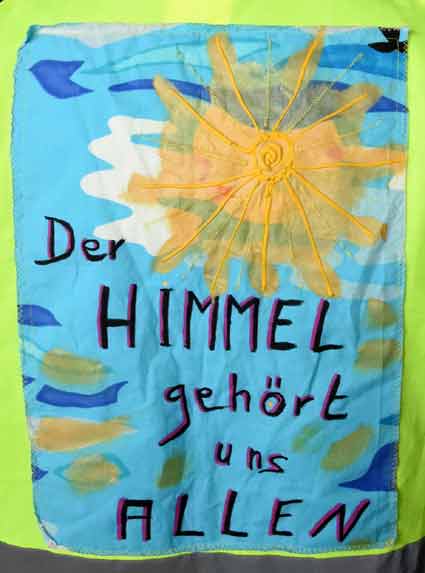 Der
HIMMEL
gehört
uns
ALLEN